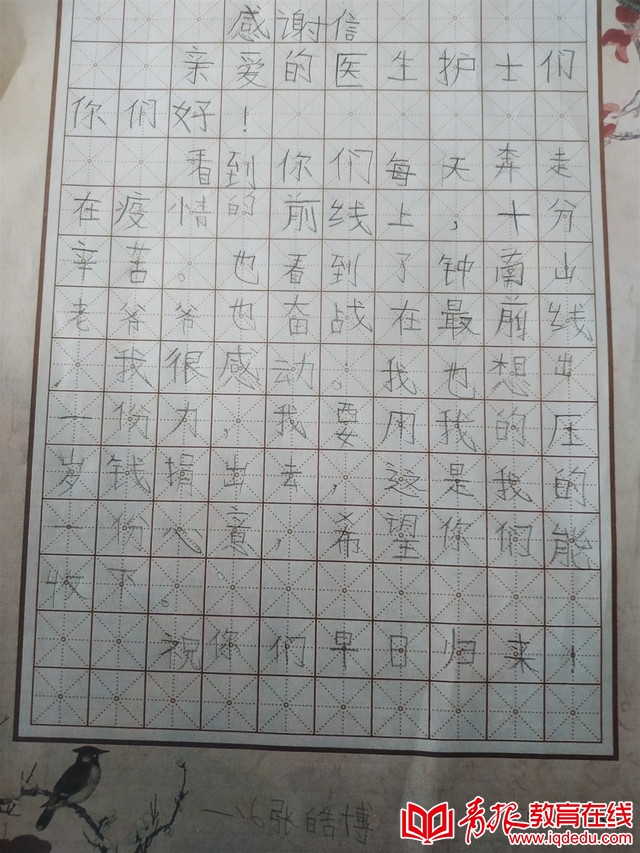 感谢信
亲爱的医生护士们
你们好！
看到你们每天奔走
在疫情的前线上，十分
辛苦。也看到了钟南山
老爷爷也奋战在最前线
，我很感动。我也想出
一份力，我要用我的压
岁钱捐出去，这是我的
一份心意，希望你们能
收下。
祝你们早日归来！
一.6张皓博
青报教育在线
www.iqdedu.com